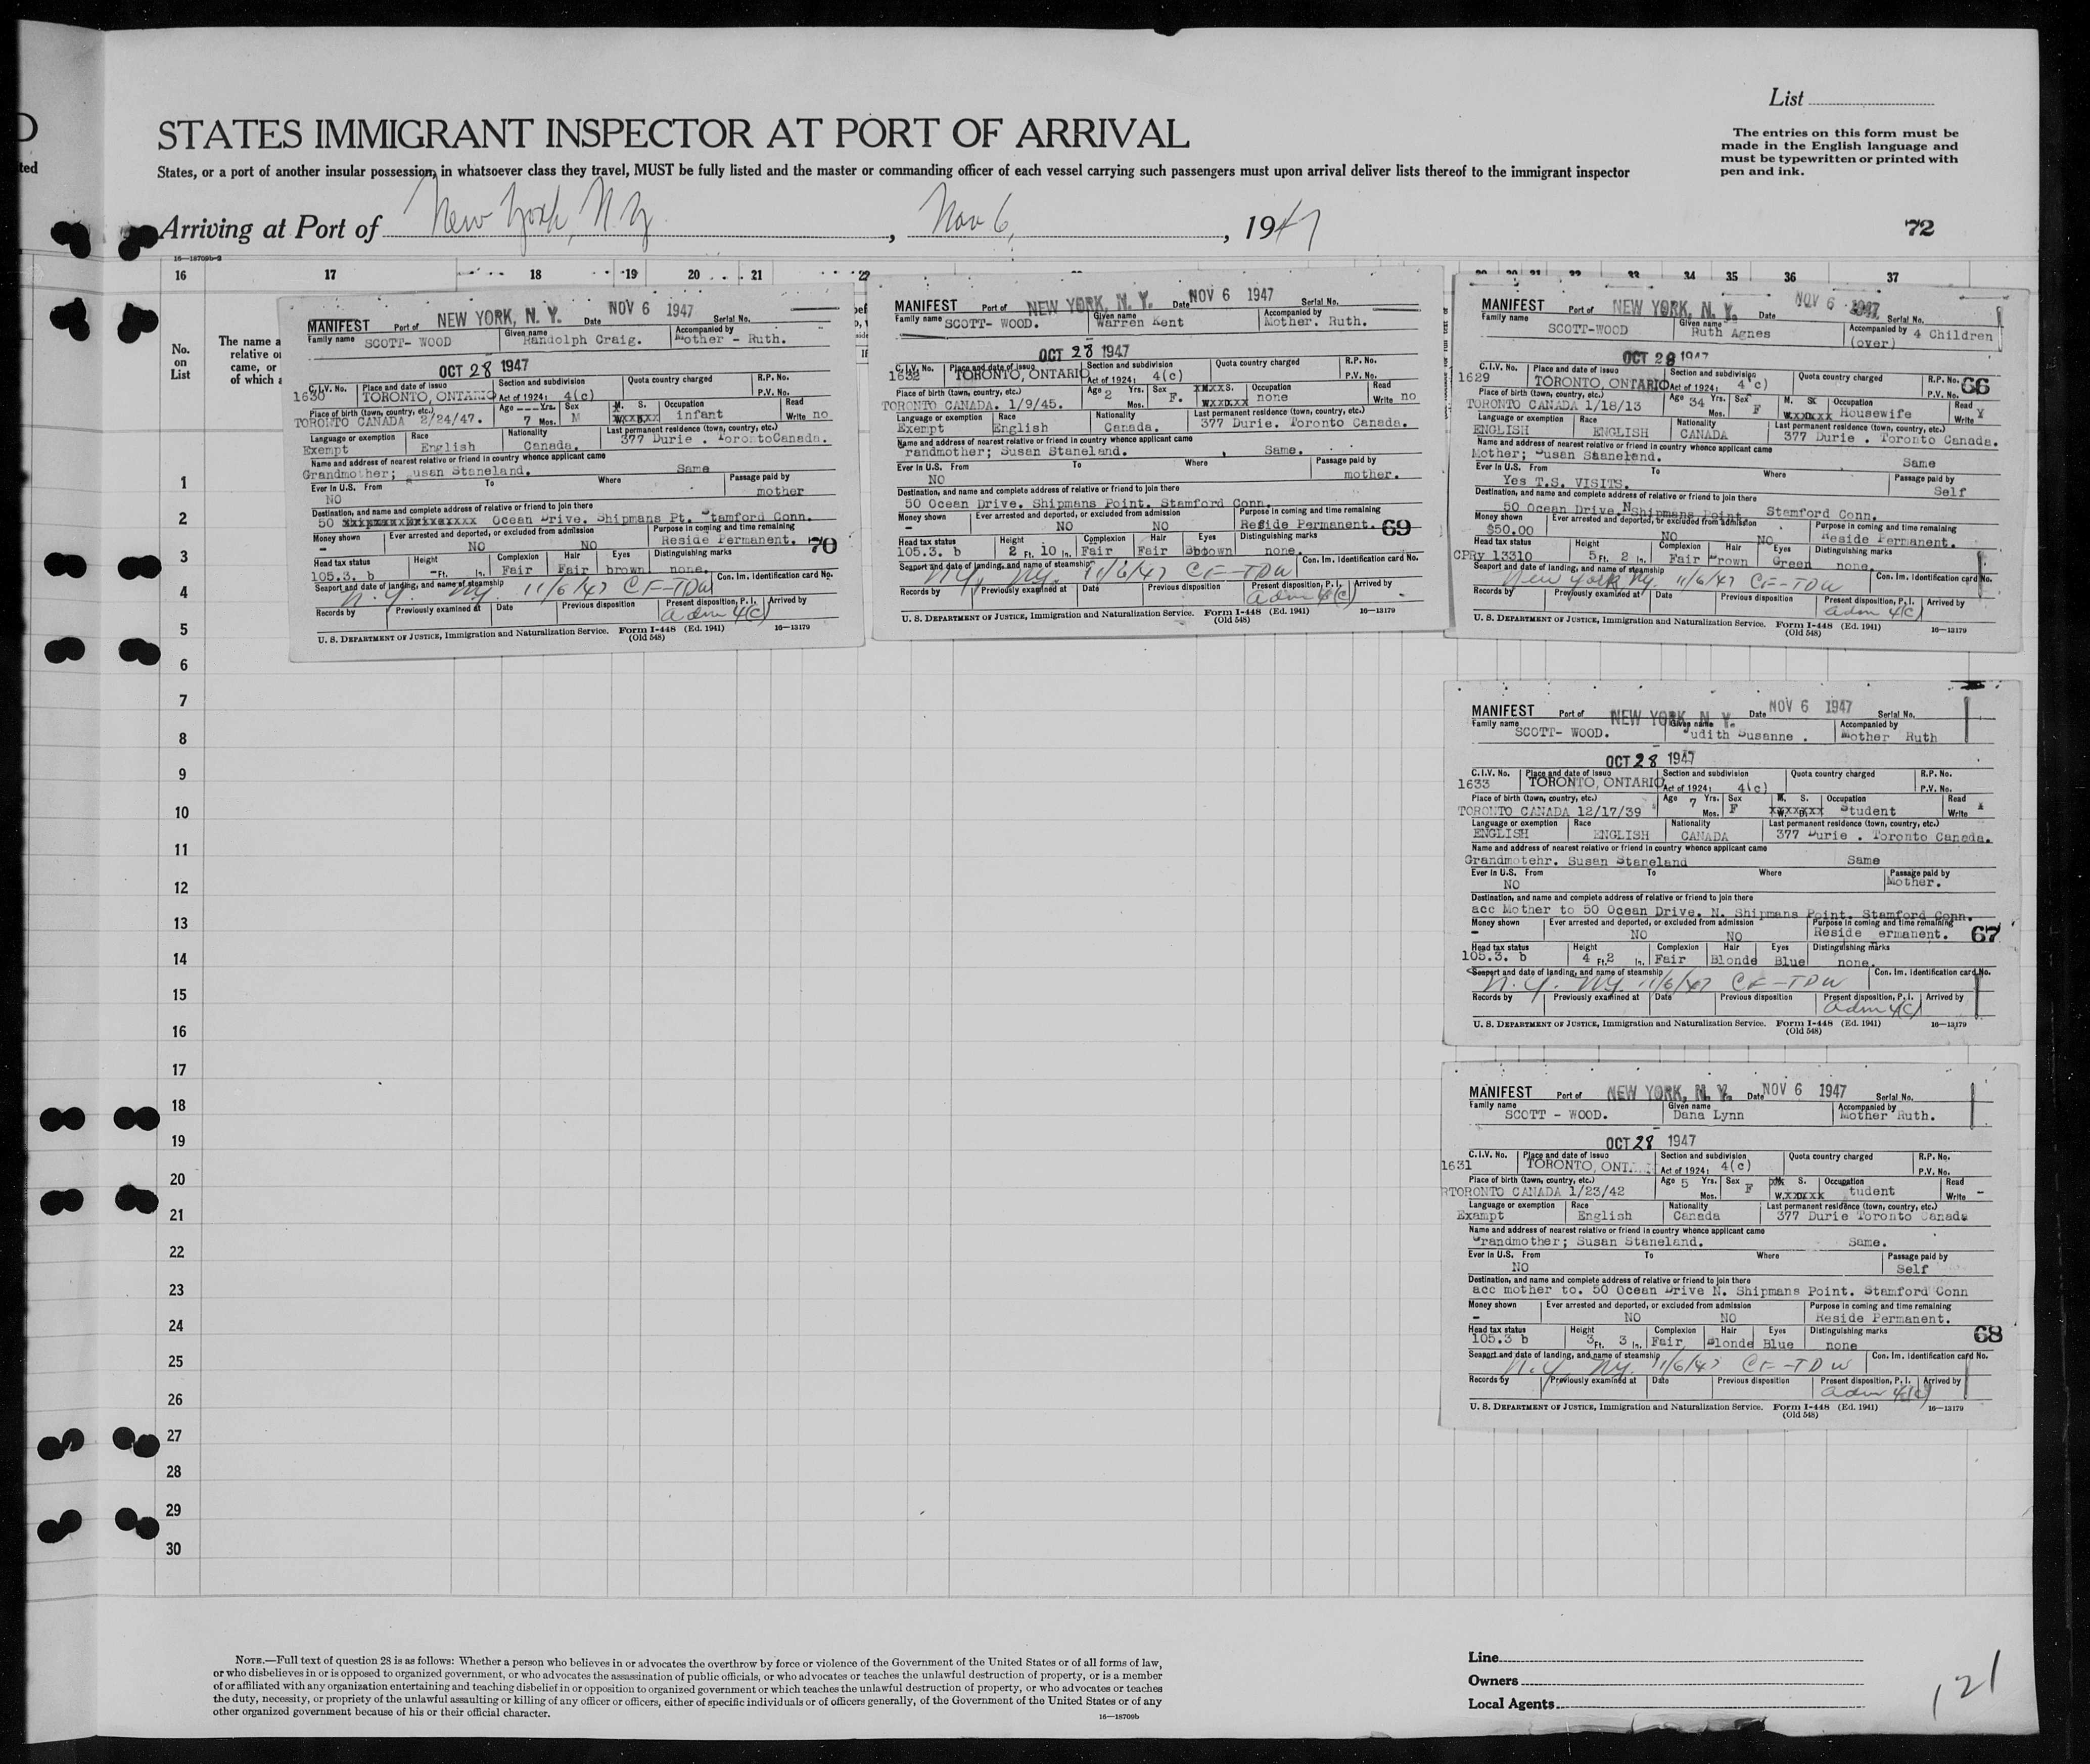 List
STATES IMMIGRANT INSPECTOR AT PORT OF ARRIVAL
The entries on this form must be
made in the English language and
must be typewritten or printed with
pen and ink.
ted
States, or a port of another insular possession, in whatsoever class they travel, MUST be fully listed and the master or commanding officer of each vessel carrying such passengers must upon arrival deliver lists thereof to the immigrant inspector
Arriving at Port of New York, N.Y, Nov 6, 1947
72
16 17 18 19 20 21 22 34 35 36 37
No.
on
List
The name a
relative or
came, or
of which a
MANIFEST Port of NEW YORK, N. Y. Date NOV 6 1947 Serial No.
Family name SCOTT- WOOD Given name Randolph Craig. Accompanied by Mother - Ruth.
OCT 28 1947
C.I.V. No. Place and date of issue Section and subdivision Quota country charged R.P. No.
1630 TORONTO, ONTARIO Act of 1924: 4(c) P.V. No.
Place of birth (town, country, etc.) Age --- Yrs. Sex M. S. Occupation Read
TORONTO CANADA 2/24/47. 7 Mos. M infant Write no
Language or exemption Race Nationality Last permanent residence (town, country, etc.)
Exempt English Canada. 377 Durie . TorontoCanada.
Name and address of nearest relative or friend in country whence applicant came
Grandmother; usan Staneland. Same
Ever in U.S. From To Where Passage paid by
NO mother
Destination, and name and complete address of relative or friend to join there
50 Ocean Drive. Shipmans Pt. Stamford Conn.
Money shown Ever arrested and deported, or excluded from admission Purpose in coming and time remaining
- NO NO Reside Permanent. 70
Head tax status Height Complexion Hair Eyes Distinguishing marks
105.3. b -Ft. In. Fair Fair brown none.
Seaport and date of landing, and name of steamship Con. Im. Identification card No.
N.Y. NY. 11/6/47 CF-TDW
Records by Previously examined at Date Previous disposition Present disposition, P. I. Arrived by
adm 4(c)
U. S. DEPARTMENT OF JUSTICE, Immigration and Naturalization Service. Form I-448 (Ed. 1941) 16—13179
(Old 548)
MANIFEST Port of NEW YORK, N. Y. Date NOV 6 1947 Serial No.
Family name SCOTT- WOOD. Given name Warren Kent Accompanied by Mother. Ruth.
OCT 28 1947
C.I.V. No. Place and date of issue Section and subdivision Quota country charged R.P. No.
1632 TORONTO, ONTARIO Act of 1924: 4(c) P.V. No.
Place of birth (town, country, etc.) Age 2 Yrs. Sex S. Occupation Read
TORONTO CANADA. 1/9/45. Mos. F. none Write no
Language or exemption Race Nationality Last permanent residence (town, country, etc.)
Exempt English Canada. 377 Durie. Toronto Canada.
Name and address of nearest relative or friend in country whence applicant came
randmother; Susan Staneland. Same.
Ever in U.S. From To Where Passage paid by
NO mother.
Destination, and name and complete address of relative or friend to join there
50 Ocean Drive. Shipmans Point. Stamford Conn.
Money shown Ever arrested and deported, or excluded from admission Purpose in coming and time remaining
- NO NO Reside Permanent. 69
Head tax status Height Complexion Hair Eyes Distinguishing marks
105.3. b 2 Ft. 10 In. Fair Fair none.
Seaport and date of landing, and name of steamship Con. Im. Identification card No.
N.Y, NY. 11/6/47 CF-TDW
Records by Previously examined at Date Previous disposition Present disposition, P. I. Arrived by
adm 4(c)
U. S. DEPARTMENT OF JUSTICE, Immigration and Naturalization Service. Form I-448 (Ed. 1941) 16—13179
(Old 548)
MANIFEST Port of NEW YORK, N. Y. Date NOV 6 1947 Serial No.
Family name SCOTT-WOOD Given name Ruth Agnes Accompanied by 4 Children
(over)
OCT 28 1947
C.I.V. No. Place and date of issue Section and subdivision Quota country charged R.P. No. 66
1629 TORONTO, ONTARIO Act of 1924: 4 c) P.V. No.
Place of birth (town, country, etc.) Age 34 Yrs. Sex M. S. Occupation Read
TORONTO CANADA 1/18/13 Mos. F Housewife Write Y
Language or exemption Race Nationality Last permanent residence (town, country, etc.)
ENGLISH ENGLISH CANADA 377 Durie . Toronto Canada.
Name and address of nearest relative or friend in country whence applicant came
Mother; Susan Saaneland. Same
Ever in U.S. From To Where Passage paid by
Yes T.S. VISITS. Self
Destination, and name and complete address of relative or friend to join there
50 Ocean Drive. N Shipmans Point. Stamford Conn.
Money shown Ever arrested and deported, or excluded from admission Purpose in coming and time remaining
$50.00 NO NO Reside Permanent.
Head tax status Height Complexion Hair Eyes Distinguishing marks
CPRy 13310 5 Ft. 2 In. Fair Brown Green none.
Seaport and date of landing, and name of steamship Con. Im. Identification card No.
New York Ny. 11/6/47 CF-TDW
Records by Previously examined at Date Previous disposition Present disposition, P. I. Arrived by
adm 4(c)
U. S. DEPARTMENT OF JUSTICE, Immigration and Naturalization Service. Form I-448 (Ed. 1941) 16—13179
(Old 548)
MANIFEST Port of NEW YORK, N. Y. Date NOV 6 1947 Serial No.
Family name SCOTT- WOOD. Given name Judith Susanne . Accompanied by Mother Ruth
OCT 28 1947
C.I.V. No. Place and date of issue Section and subdivision Quota country charged R.P. No.
1633 TORONTO, ONTARIO Act of 1924: 4(c) P.V. No.
Place of birth (town, country, etc.) Age 7 Yrs. Sex M. S. Occupation Read
TORONTO CANADA 12/17/39 Mos. F Student Write
Language or exemption Race Nationality Last permanent residence (town, country, etc.)
ENGLISH ENGLISH CANADA 377 Durie . Toronto Canada.
Name and address of nearest relative or friend in country whence applicant came
Grandmotehr. Susan Staneland Same
Ever in U.S. From To Where Passage paid by
NO Mother.
Destination, and name and complete address of relative or friend to join there
acc Mother to 50 Ocean Drive. N. Shipmans Point. Stamford Conn.
Money shown Ever arrested and deported, or excluded from admission Purpose in coming and time remaining
- NO NO Reside ermanent. 67
Head tax status Height Complexion Hair Eyes Distinguishing marks
105.3. b 4 Ft. 2 In. Fair Blonde Blue none.
Seaport and date of landing, and name of steamship Con. Im. Identification card No.
N.Y. NY. 11/6/47 CF-TDW
Records by Previously examined at Date Previous disposition Present disposition, P. I. Arrived by
adm 4(c)
U. S. DEPARTMENT OF JUSTICE, Immigration and Naturalization Service. Form I-448 (Ed. 1941) 16—13179
(Old 548)
MANIFEST Port of NEW YORK, N. Y. Date NOV 6 1947 Serial No.
Family name SCOTT - WOOD. Given name Dana Lynn Accompanied by Mother Ruth.
OCT 28 1947
C.I.V. No. Place and date of issue Section and subdivision Quota country charged R.P. No.
1631 TORONTO, ONT. Act of 1924: 4(c) P.V. No.
Place of birth (town, country, etc.) Age 5 Yrs. Sex S. Occupation Read
TORONTO CANADA 1/23/42 Mos. F tudent Write -
Language or exemption Race Nationality Last permanent residence (town, country, etc.)
Exampt English Canada 377 Durie Toronto Canada
Name and address of nearest relative or friend in country whence applicant came
Grandmother; Susan Staneland. Same.
Ever in U.S. From To Where Passage paid by
NO Self
Destination, and name and complete address of relative or friend to join there
acc mother to. 50 Ocean Drive N. Shipmans Point. Stamford Conn
Money shown Ever arrested and deported, or excluded from admission Purpose in coming and time remaining
- NO NO Reside Permanent.
Head tax status Height Complexion Hair Eyes Distinguishing marks 68
105.3 b 3 Ft. 3 In. Fair Blonde Blue none
Seaport and date of landing, and name of steamship Con. Im. Identification card No.
N.Y. NY. 11/6/47 CF-TDW
Records by Previously examined at Date Previous disposition Present disposition, P. I. Arrived by
adm 4(c)
U. S. DEPARTMENT OF JUSTICE, Immigration and Naturalization Service. Form I-448 (Ed. 1941) 16—13179
(Old 548)
1
2
3
4
5
6
7
8
9
10
11
12
13
14
15
16
17
18
19
20
21
22
23
24
25
26
27
28
29
30
NOTE.—Full text of question 28 is as follows: Whether a person who believes in or advocates the overthrow by force or violence of the Government of the United States or of all forms of law,
or who disbelieves in or is opposed to organized government, or who advocates the assassination of public officials, or who advocates or teaches the unlawful destruction of property, or is a member
of or affiliated with any organization entertaining and teaching disbelief in or opposition to organized government or which teaches the unlawful destruction of property, or who advocates or teaches
the duty, necessity, or propriety of the unlawful assaulting or killing of any officer or officers, either of specific individuals or of officers generally, of the Government of the United States or of any
other organized government because of his or their official character.
16—18709b
Line
Owners
Local Agents
121